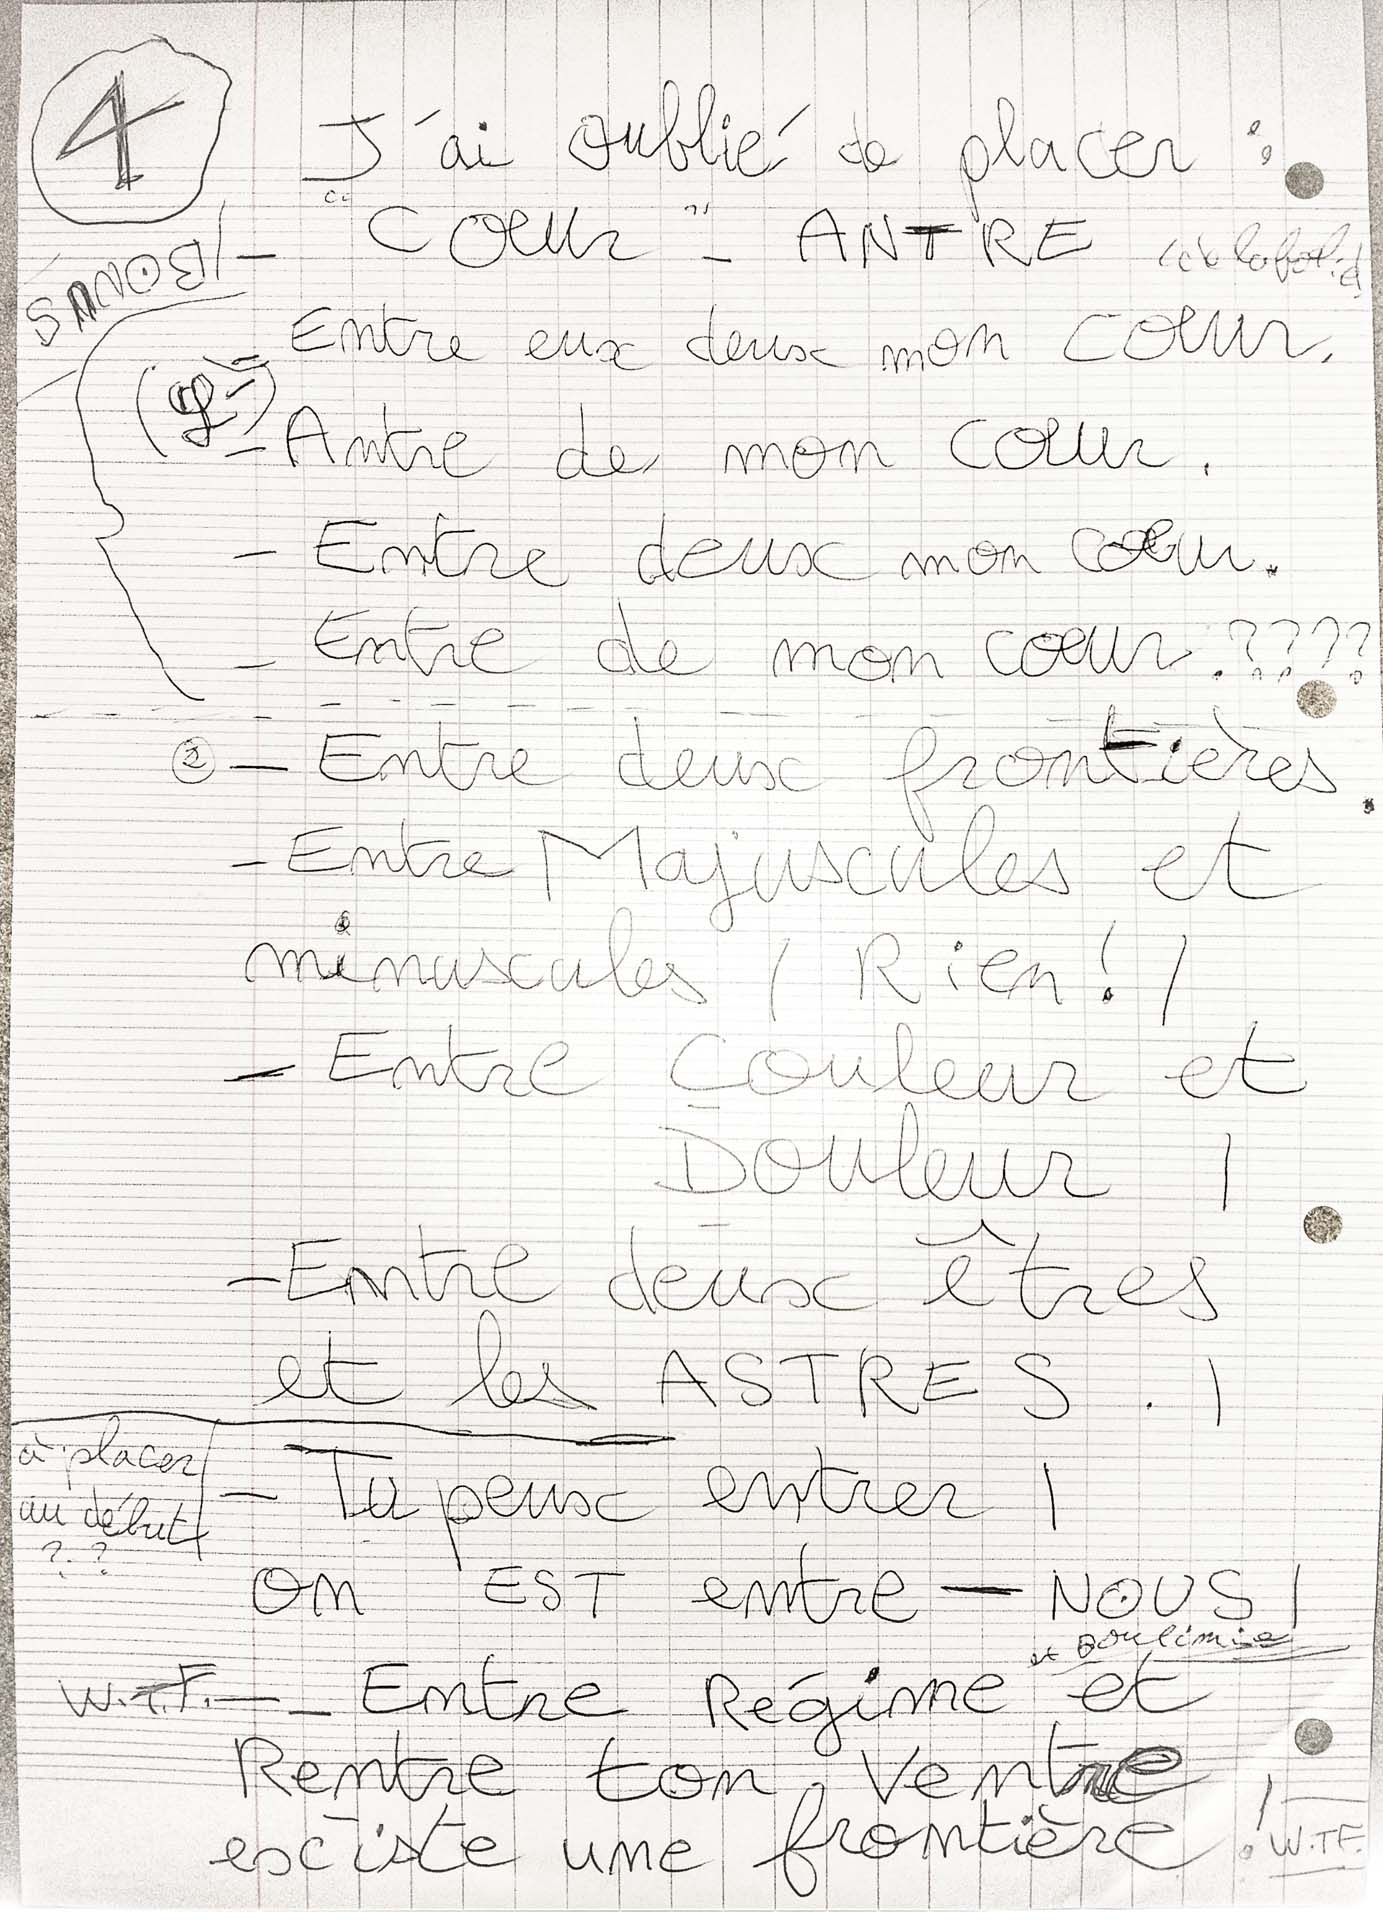 4
J'ai oublié de placer :
BONUS
- "Cœur" - ANTRE
- Entre eux deux mon cœur.
- Antre de mon cœur.
- Entre deux mon cœur.
- Entre de mon cœur. ????
② - Entre deux frontières.
- Entre Majuscules et
minuscules / Rien ! /
- Entre Couleur et
Douleur /
- Entre deux êtres
et les ASTRES. /
à placer
au début
??
- Tu peux entrer /
on EST entre - NOUS /
et Boulimie
W.T.F. - Entre Régime et
Rentre ton Ventre
existe une frontière !
W.TF.